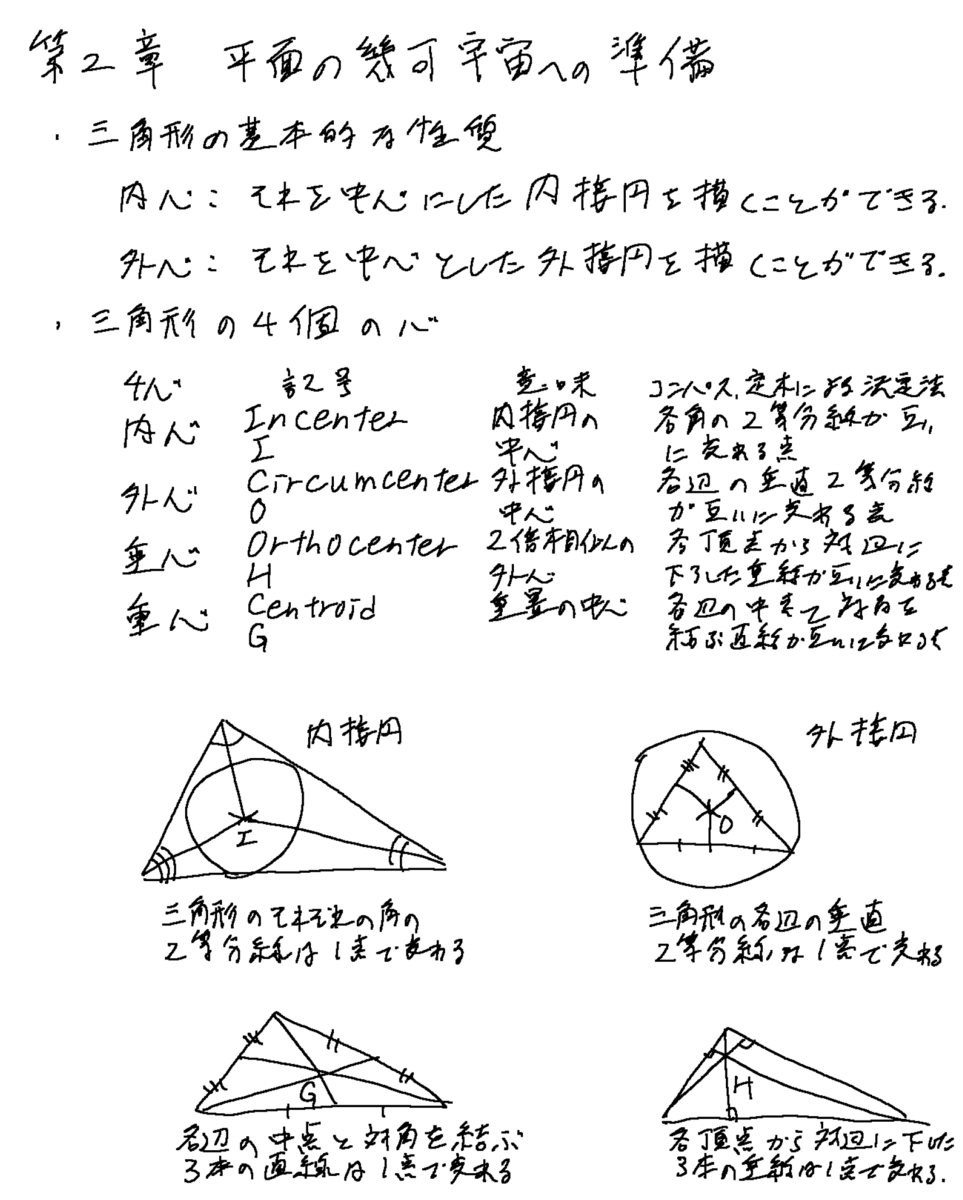 第2章 平面の幾可宇宙への準備
・三角形の基本的な性質
内心：それを中心にした内接円を描くことができる．
外心：それを中心とした外接円を描くことができる．
・三角形の4個の心
4心 記号 意味 コンパス，定木による決定法
内心 Incenter 内接円の 各角の2等分線が互い
I 中心 に交わる点
外心 Circumcenter 外接円の 各辺の垂直2等分線
O 中心 が互いに交わる点
垂心 Orthocenter 2倍相似の 各頂点から対辺に
H 外心 下ろした垂線が互いに交わる点
重心 Centroid 重量の中心 各辺の中点と対角を
G 結ぶ直線が互いに交わる点
内接円 外接円
I O
三角形のそれぞれの角の
2等分線は1点で交わる
三角形の各辺の垂直
2等分線は1点で交わる
G H
各辺の中点と対角を結ぶ
3本の直線は1点で交わる
各頂点から対辺に下した
3本の垂線は1点で交わる．